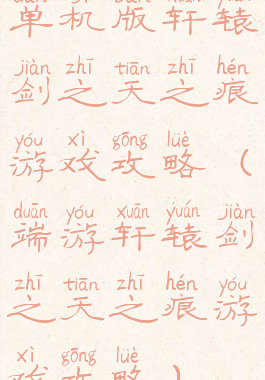 单机版轩辕
jiàn zhī tiān zhī hén
剑之天之痕
yóu xì gōng lüè
游戏攻略（
duān yóu xuān yuán jiàn
端游轩辕剑
zhī tiān zhī hén yóu
之天之痕游
xì gōng lüè
戏攻略）